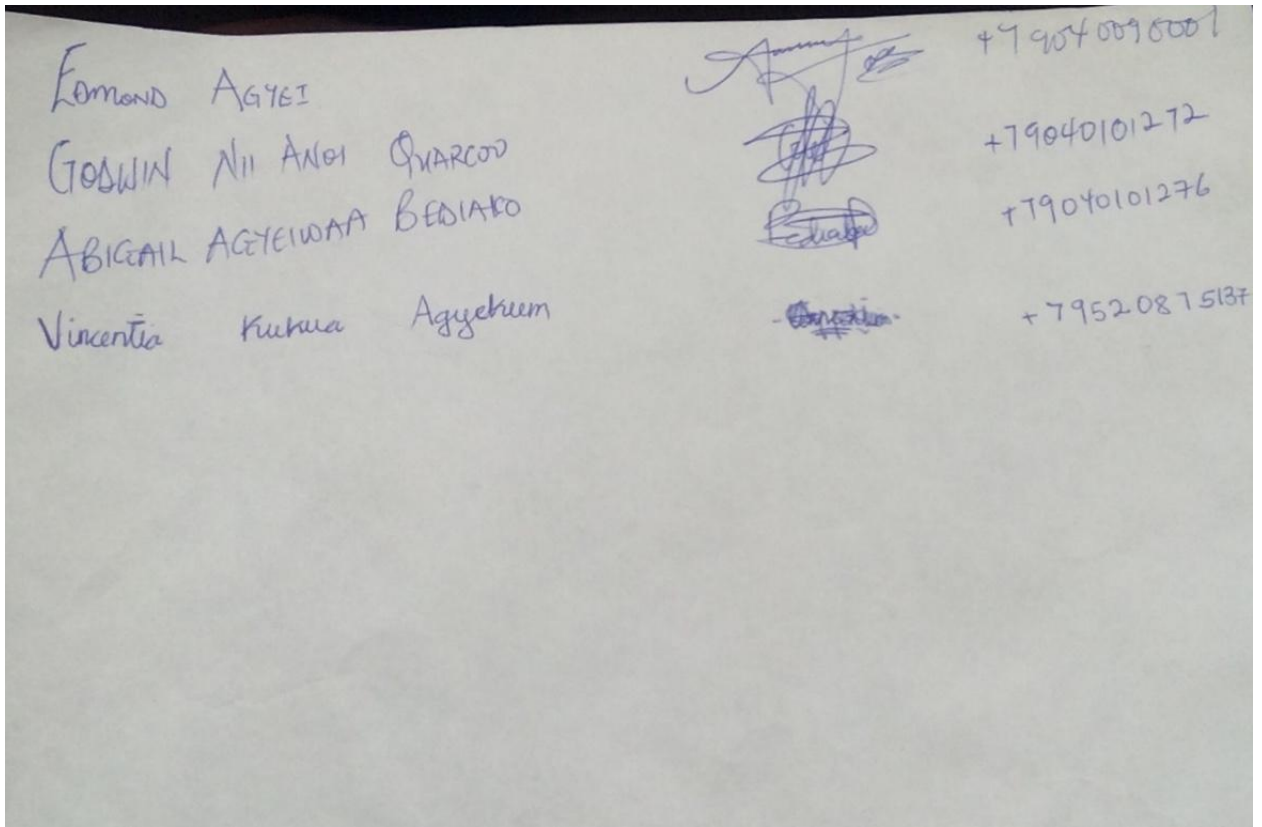 EDMOND AGYEI +79040090001
GODWIN NII ANOI QUARCOO +79040101272
ABIGAIL AGYEIWAA BEDIAKO +79040101276
Vincentia Kukua Agyekum +79520875137